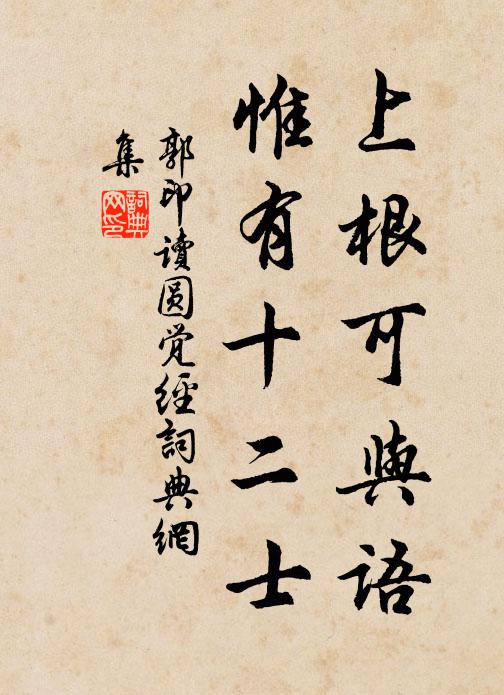 上根可與語
惟有十二士
郭印讀圆觉經詞典網
集
詞典
网印